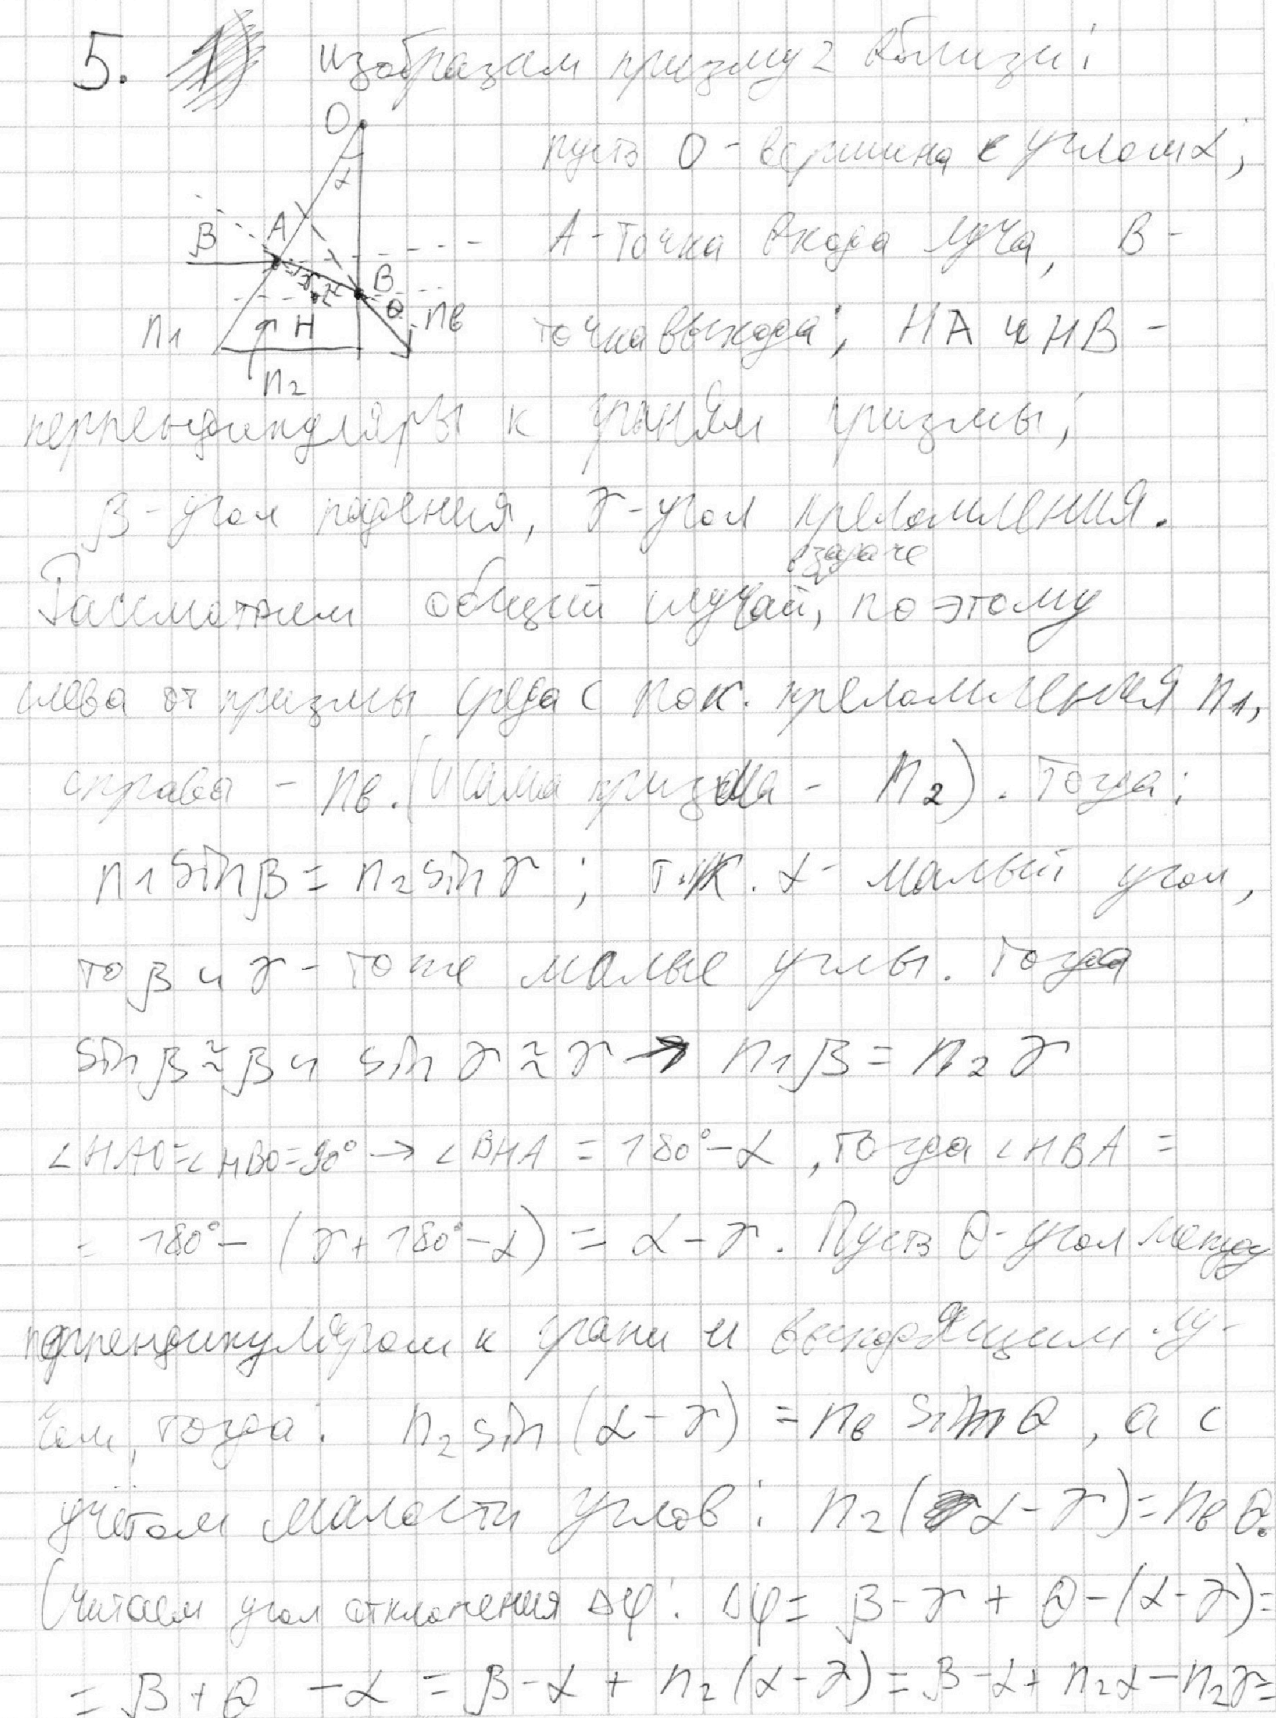 5. Изобразим призму 2 вблизи:
O
α
пусть O - вершина с углом α;
β A B θ
γ
n1 H nв
n2
A - точка входа луча, B -
точка выхода; HA и HB -
перпендикуляры к граням призмы;
β - угол падения, γ - угол преломления.
в задаче
Рассмотрим общий случай, поэтому
слева от призмы среда с пок. преломления n1,
справа - nв. (и сама призма - n2). Тогда:
n1 sinβ = n2 sinγ ; т.к. α - малый угол,
то β и γ - тоже малые углы. Тогда
sinβ ≈ β и sin γ ≈ γ → n1β = n2 γ
∠HAO = ∠HBO = 90° → ∠BHA = 180° - α , тогда ∠HBA =
= 180° - (γ + 180° - α) = α - γ. Пусть θ - угол между
перпендикуляром к грани и выходящим лу-
чем, тогда: n2 sin (α - γ) = nв sin θ , а с
учётом малости углов: n2 (α - γ) = nв θ.
Считаем угол отклонения Δφ: Δφ = β - γ + θ - (α - γ) =
= β + θ - α = β - α + n2 (α - γ) = β - α + n2α - n2γ =